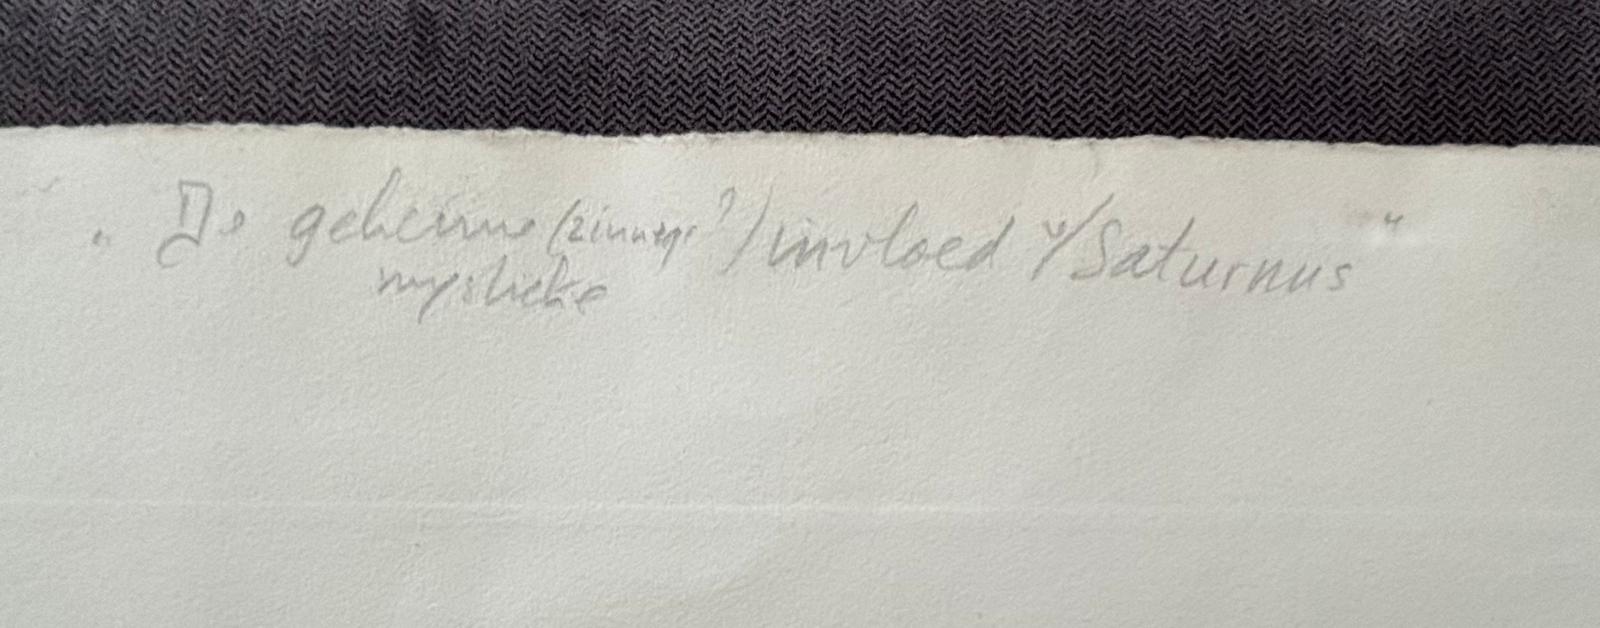 „ De geheime ( ?) invloed v/ Saturnus "
mystieke